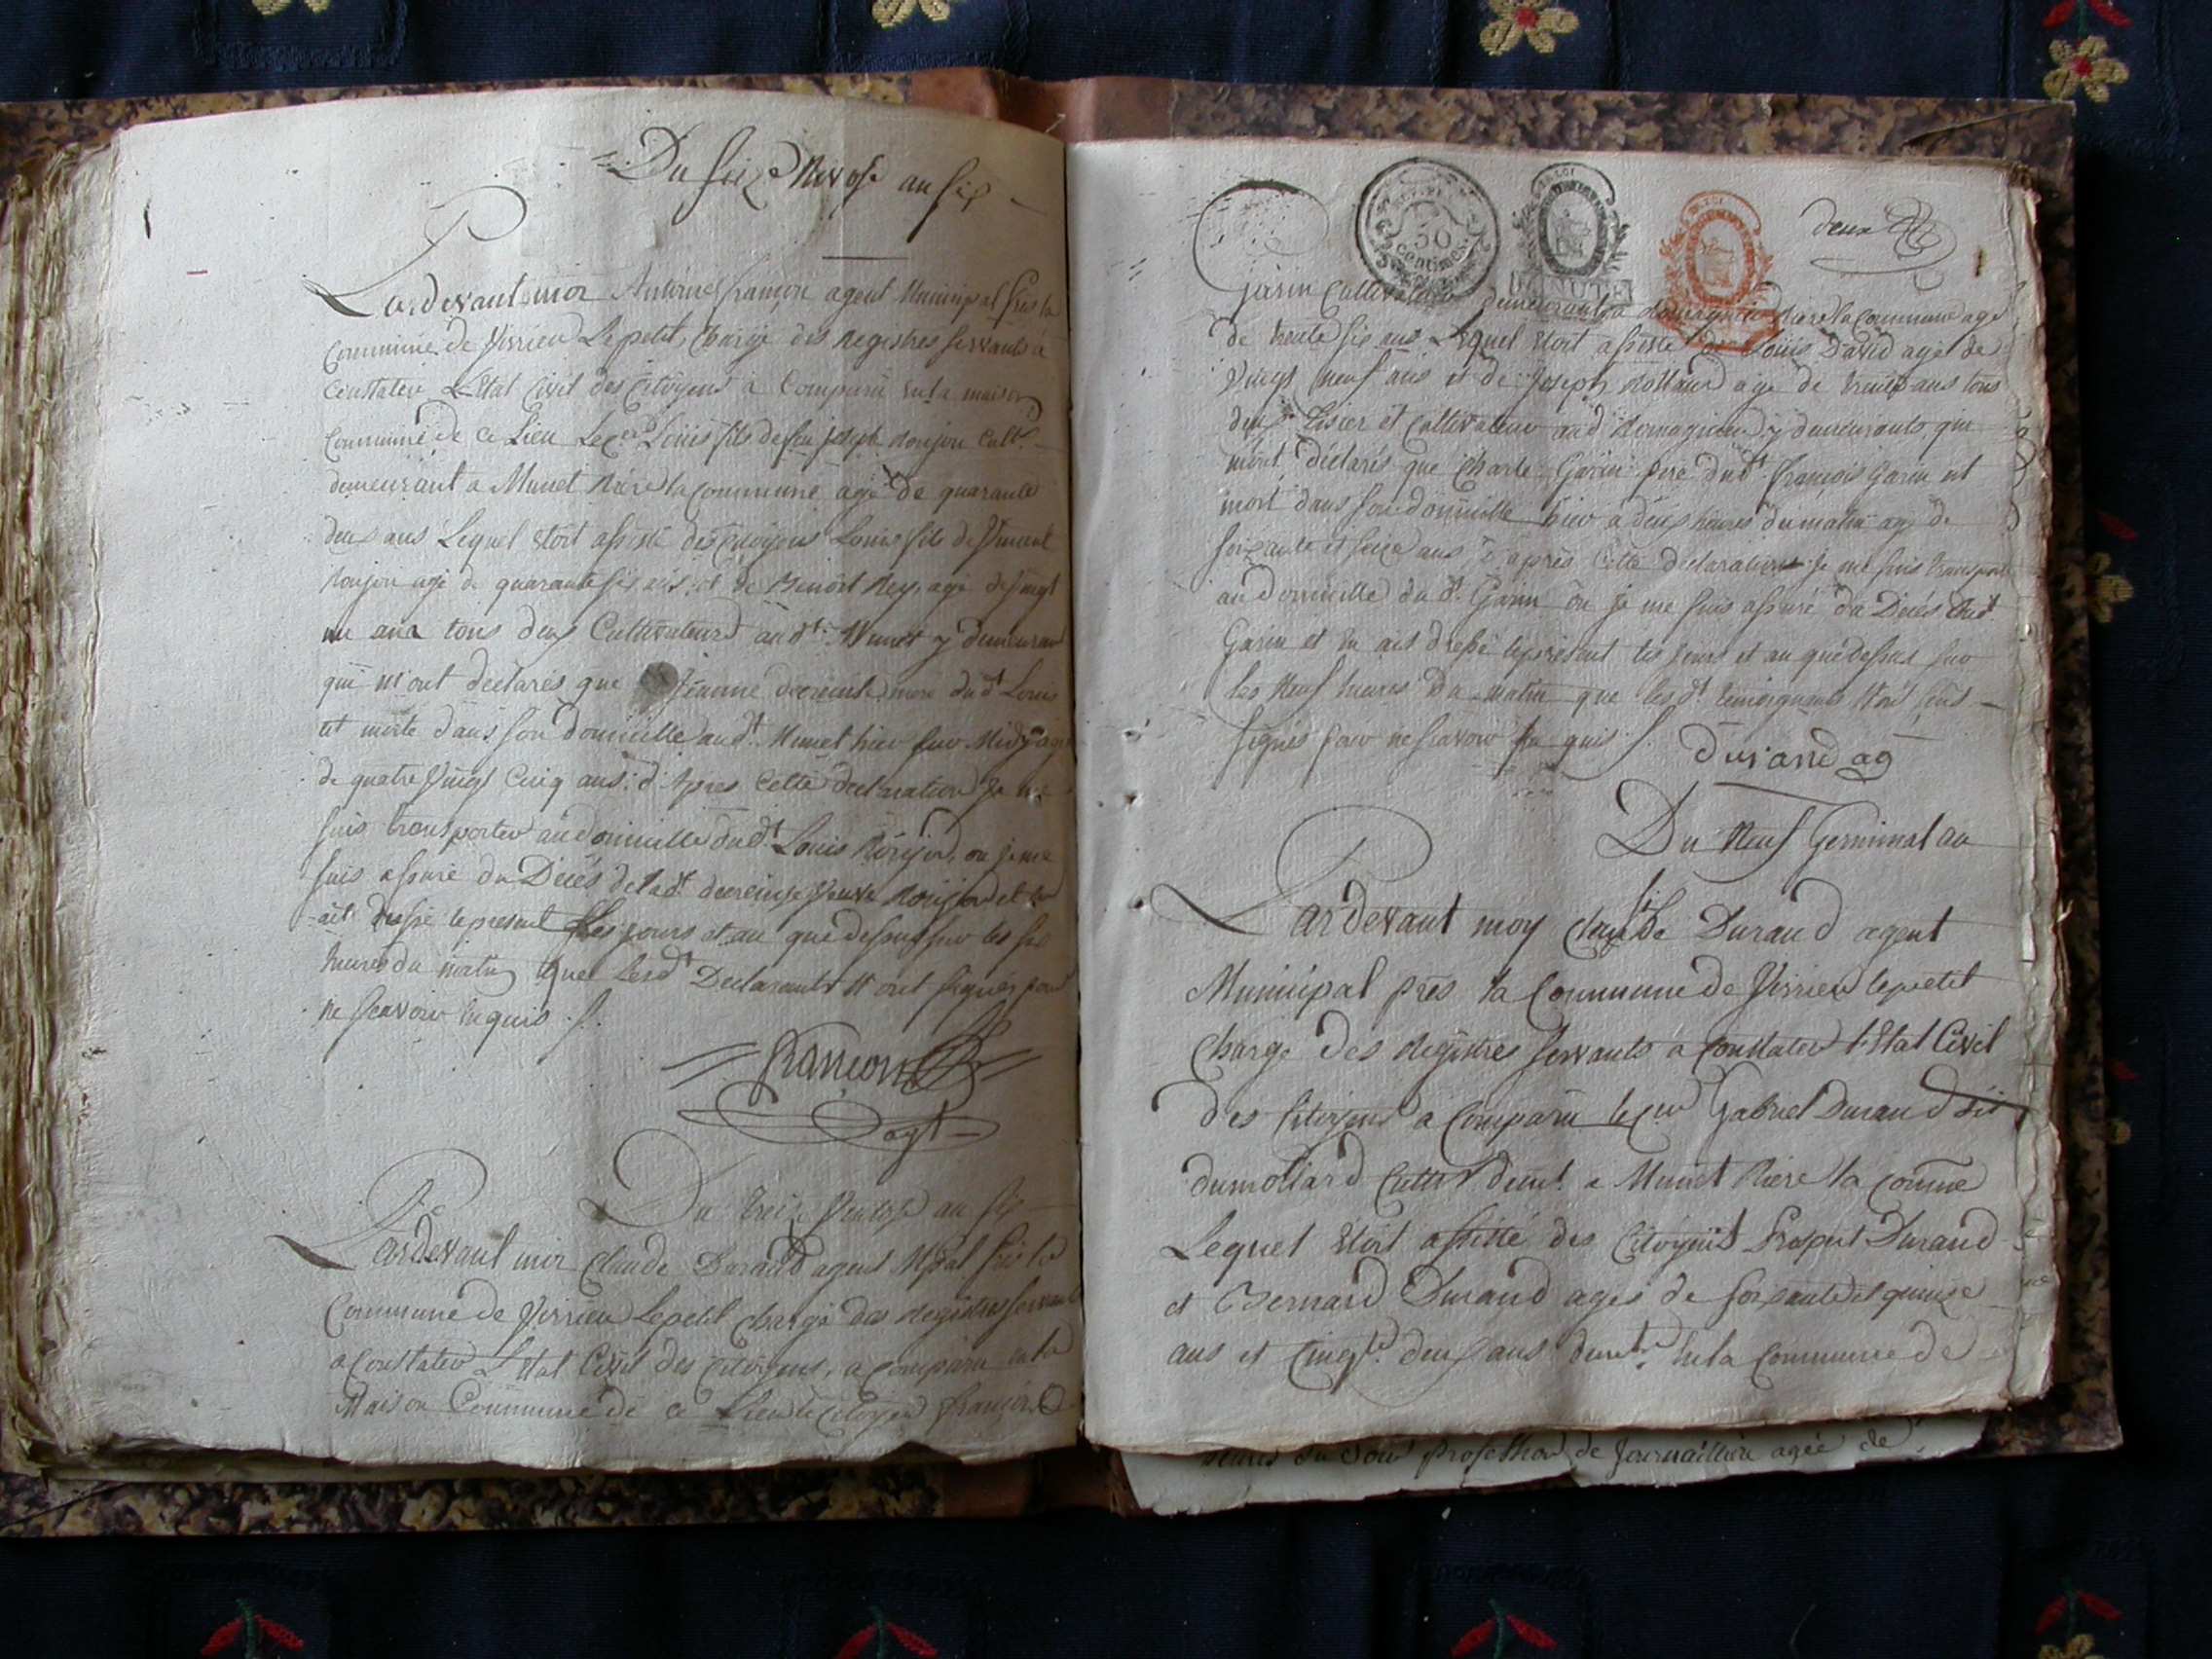 Du seize Nivose an six
Pardevant moi Antoine françon agent Municipal près la
Commune de Virrieu Le petit, chargé des registres servants à
Constater L'Etat Civil des Citoyens a Comparu en la maison
Commune de ce Lieu Le Cen Louis fils de feu joseph
demeurant a Munet riere la commune agé de quarante
deux ans Lequel étoit assisté des Citoyens Louis fils de Vincent
agé de quarante six ans, et de Benoit Rey, agé de vingt
un ans tous deux Cultivateurs aud.t Munet y demeurant
qui m'ont déclarés que jeanne mere dud.t Louis
et morte dans son domicille aud.t Munet hier sur Midy agé
de quatre vingt Cinq ans: d'Apres Cette declaration Je me
suis transporter au domicille dud.t Louis ou je me
suis assuré du Décés de lad.t veuve et en
ait dressé le present Les jours et an que dessus sur les six
heures du matin que Lesd.t Declarants N'ont signés pour
ne scavoir enquis ./.
françon
agt
Du treize Ventose an six
Pardevant moi Claude Durand agent Mpal près la
Commune de Virrieu Le petit chargé des registres servants
a Constater L'Etat Civil des Citoyens, a comparu en la
Maison Commune de ce Lieu le Citoyen françois
50
Centimes
MINUTE
deux
Garin Cultivateur demeurant a riere la Commune agé
de trente six ans Lequel étoit assisté de Louis David agé de
Vingt neuf ans et de Joseph Rolland agé de trente ans tous
deux Tisier et Cultivateur aud y demeurants qui
m'ont déclarés que Charle Garin pere dud.t françois Garin est
mort dans son domicille hier a deux heures du matin agé de
soixante et seize ans d'après Cette declaration Je me suis transporté
au domicille du d.t Garin ou je me suis assuré du Décés dud.t
Garin et en ais dressé le present les jours et an que dessus sur
les Neuf heures du matin que les d.t temoignants N'ont sus
signés pour ne scavoir en quis ./.
Durand ag
Du Neuf Germinal an
six
Pardevant moy claude Durand agent
Municipal près la Commune de Virrieu le petit
chargé des Registres servants a Constater l'Etat Civil
des Citoyens a Comparu le Cen Gabriel Durand dit
dumollard Cultr demt. a Munet Riere la Comune
Lequel étoit assisté des Citoyens Prospert Durand
et Bernard Durand agés de soixante et quinze
ans et Cinqte. deux ans demts. en la Commune de
heures du soir de journailliere agée de